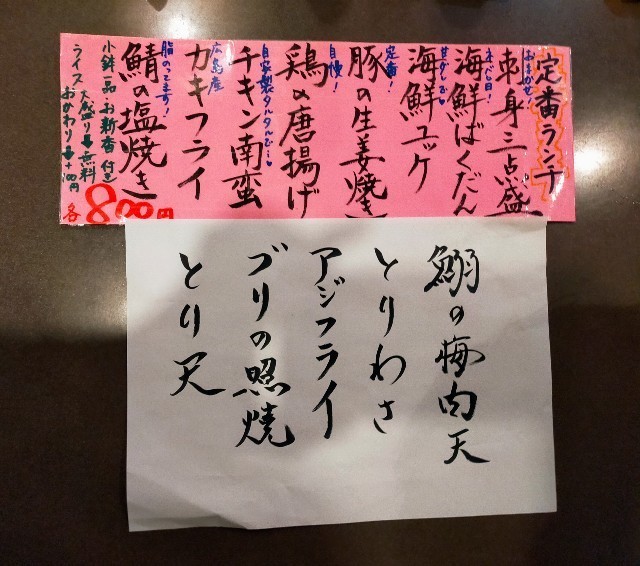 定番ランチ
おまかせ!
刺身三点盛
ネバとろ!
海鮮ばくだん
甘からで♥
海鮮ユッケ
定番!
豚の生姜焼き
自慢!
鶏の唐揚げ
自家製タルタルで…♥
チキン南蛮
広島産
カキフライ
脂のってます!
鯖の塩焼き
小鉢一品・お新香付き
ライス 大盛り→無料
おかわり→+100円
各800円
鰯の梅肉天
とりわさ
アジフライ
ブリの照焼
とり天